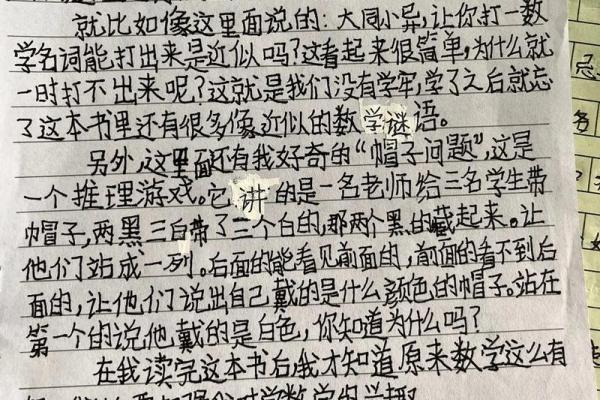 就比如像这里面说的：大同小异，让你打一数
学名词能打出来是近似吗？这看起来很简单，为什么就
一时打不出来呢？这就是我们没有学牢，学了之后就忘
了这本书里还有很多像近似的数学谜语。
另外，这里面还有我好奇的“帽子问题”，这是
一个推理游戏。它讲的是一名老师给三名学生带
帽子，两黑三白带了三个白的，那两个黑的藏起来。让
他们站成一列。后面的能看见前面的，前面的看不到后
面的，让他们说出自己戴的是什么颜色的帽子。站在
第一个的说他戴的是白色，你知道为什么吗？
在我读完这本书后，我才知道原来数学这么有